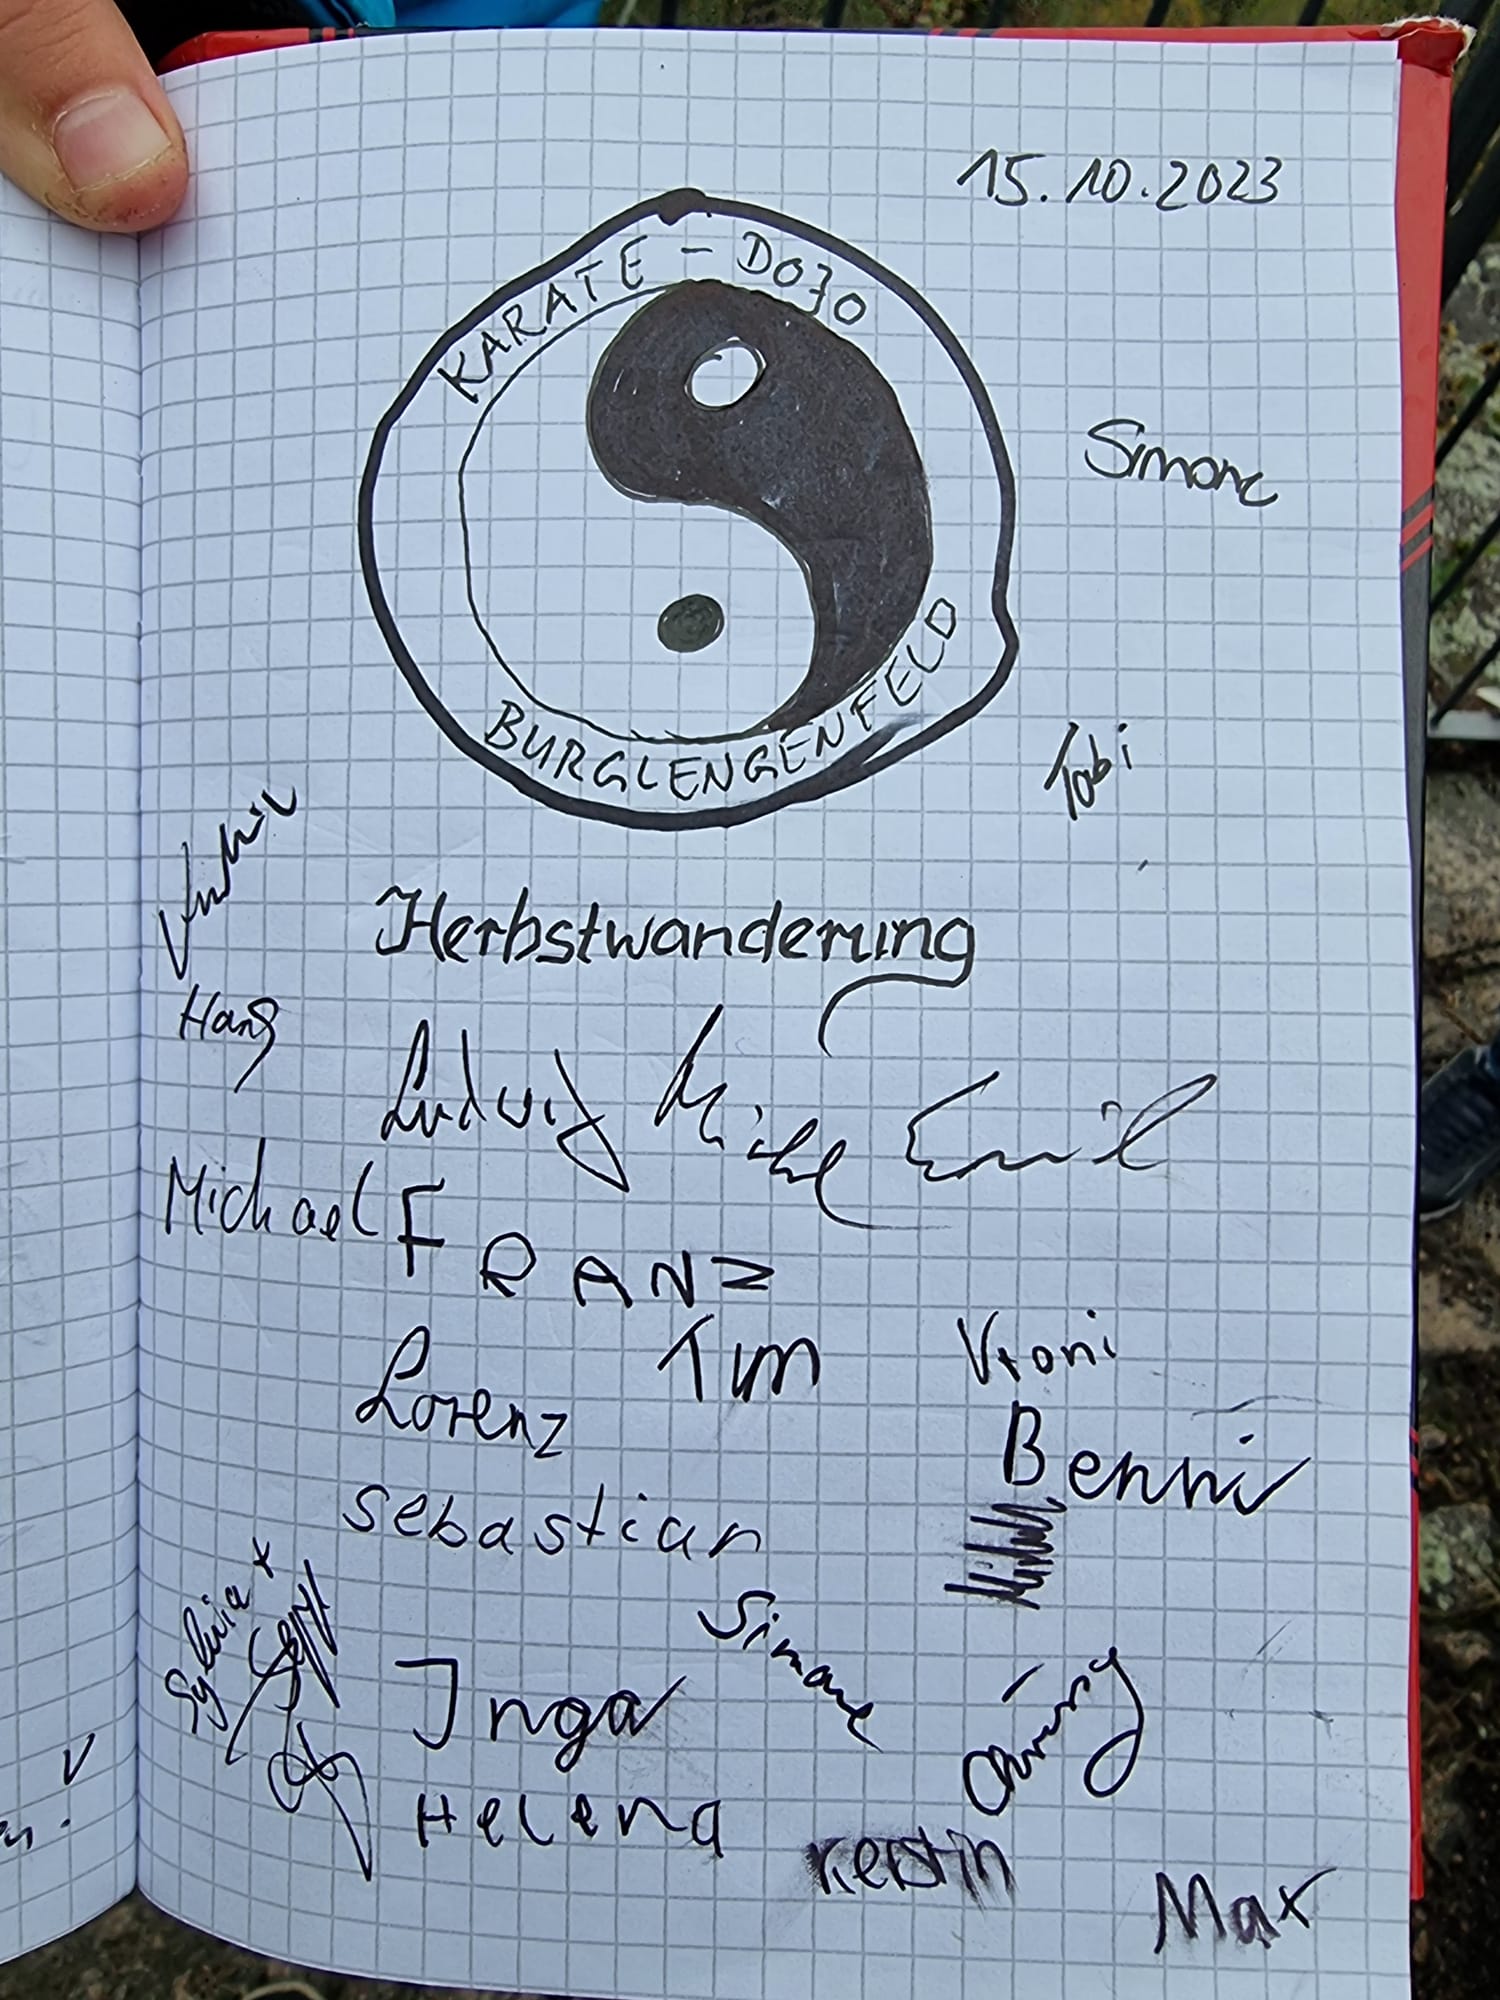 15.10.2023
KARATE - DOJO
BURGLENGENFELD
Simone
Tobi
Herbstwanderung
Hans
Ludwig Michl Emil
Michael
FRANZ
Tim Vroni
Lorenz
Benni
Sebastian
Simone
Sylvia + Sepp
Inga
Helena
Kerstin
Max